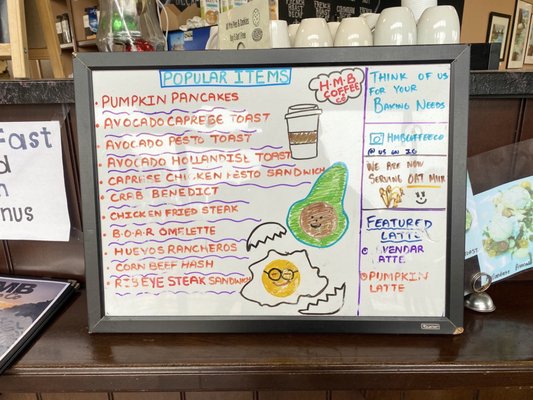 POPULAR ITEMS
PUMPKIN PANCAKES
AVOCADO CAPRESE TOAST
AVOCADO PESTO TOAST
AVOCADO HOLLANDISE TOAST
CAPRESE CHICKEN PESTO SANDWICH
CRAB BENEDICT
CHICKEN FRIED STEAK
B.O.A.R OMELETTE
HUEVOS RANCHEROS
CORN BEEF HASH
RIBEYE STEAK SANDWICH
H.M.B
COFFEE
CO
THINK OF US
FOR YOUR
BAKING NEEDS
HMBCOFFEECO
@ US ON IG
WE ARE NOW
SERVING OAT MILK
FEATURED
LATTE
LAVENDAR
LATTE
PUMPKIN
LATTE
Fast